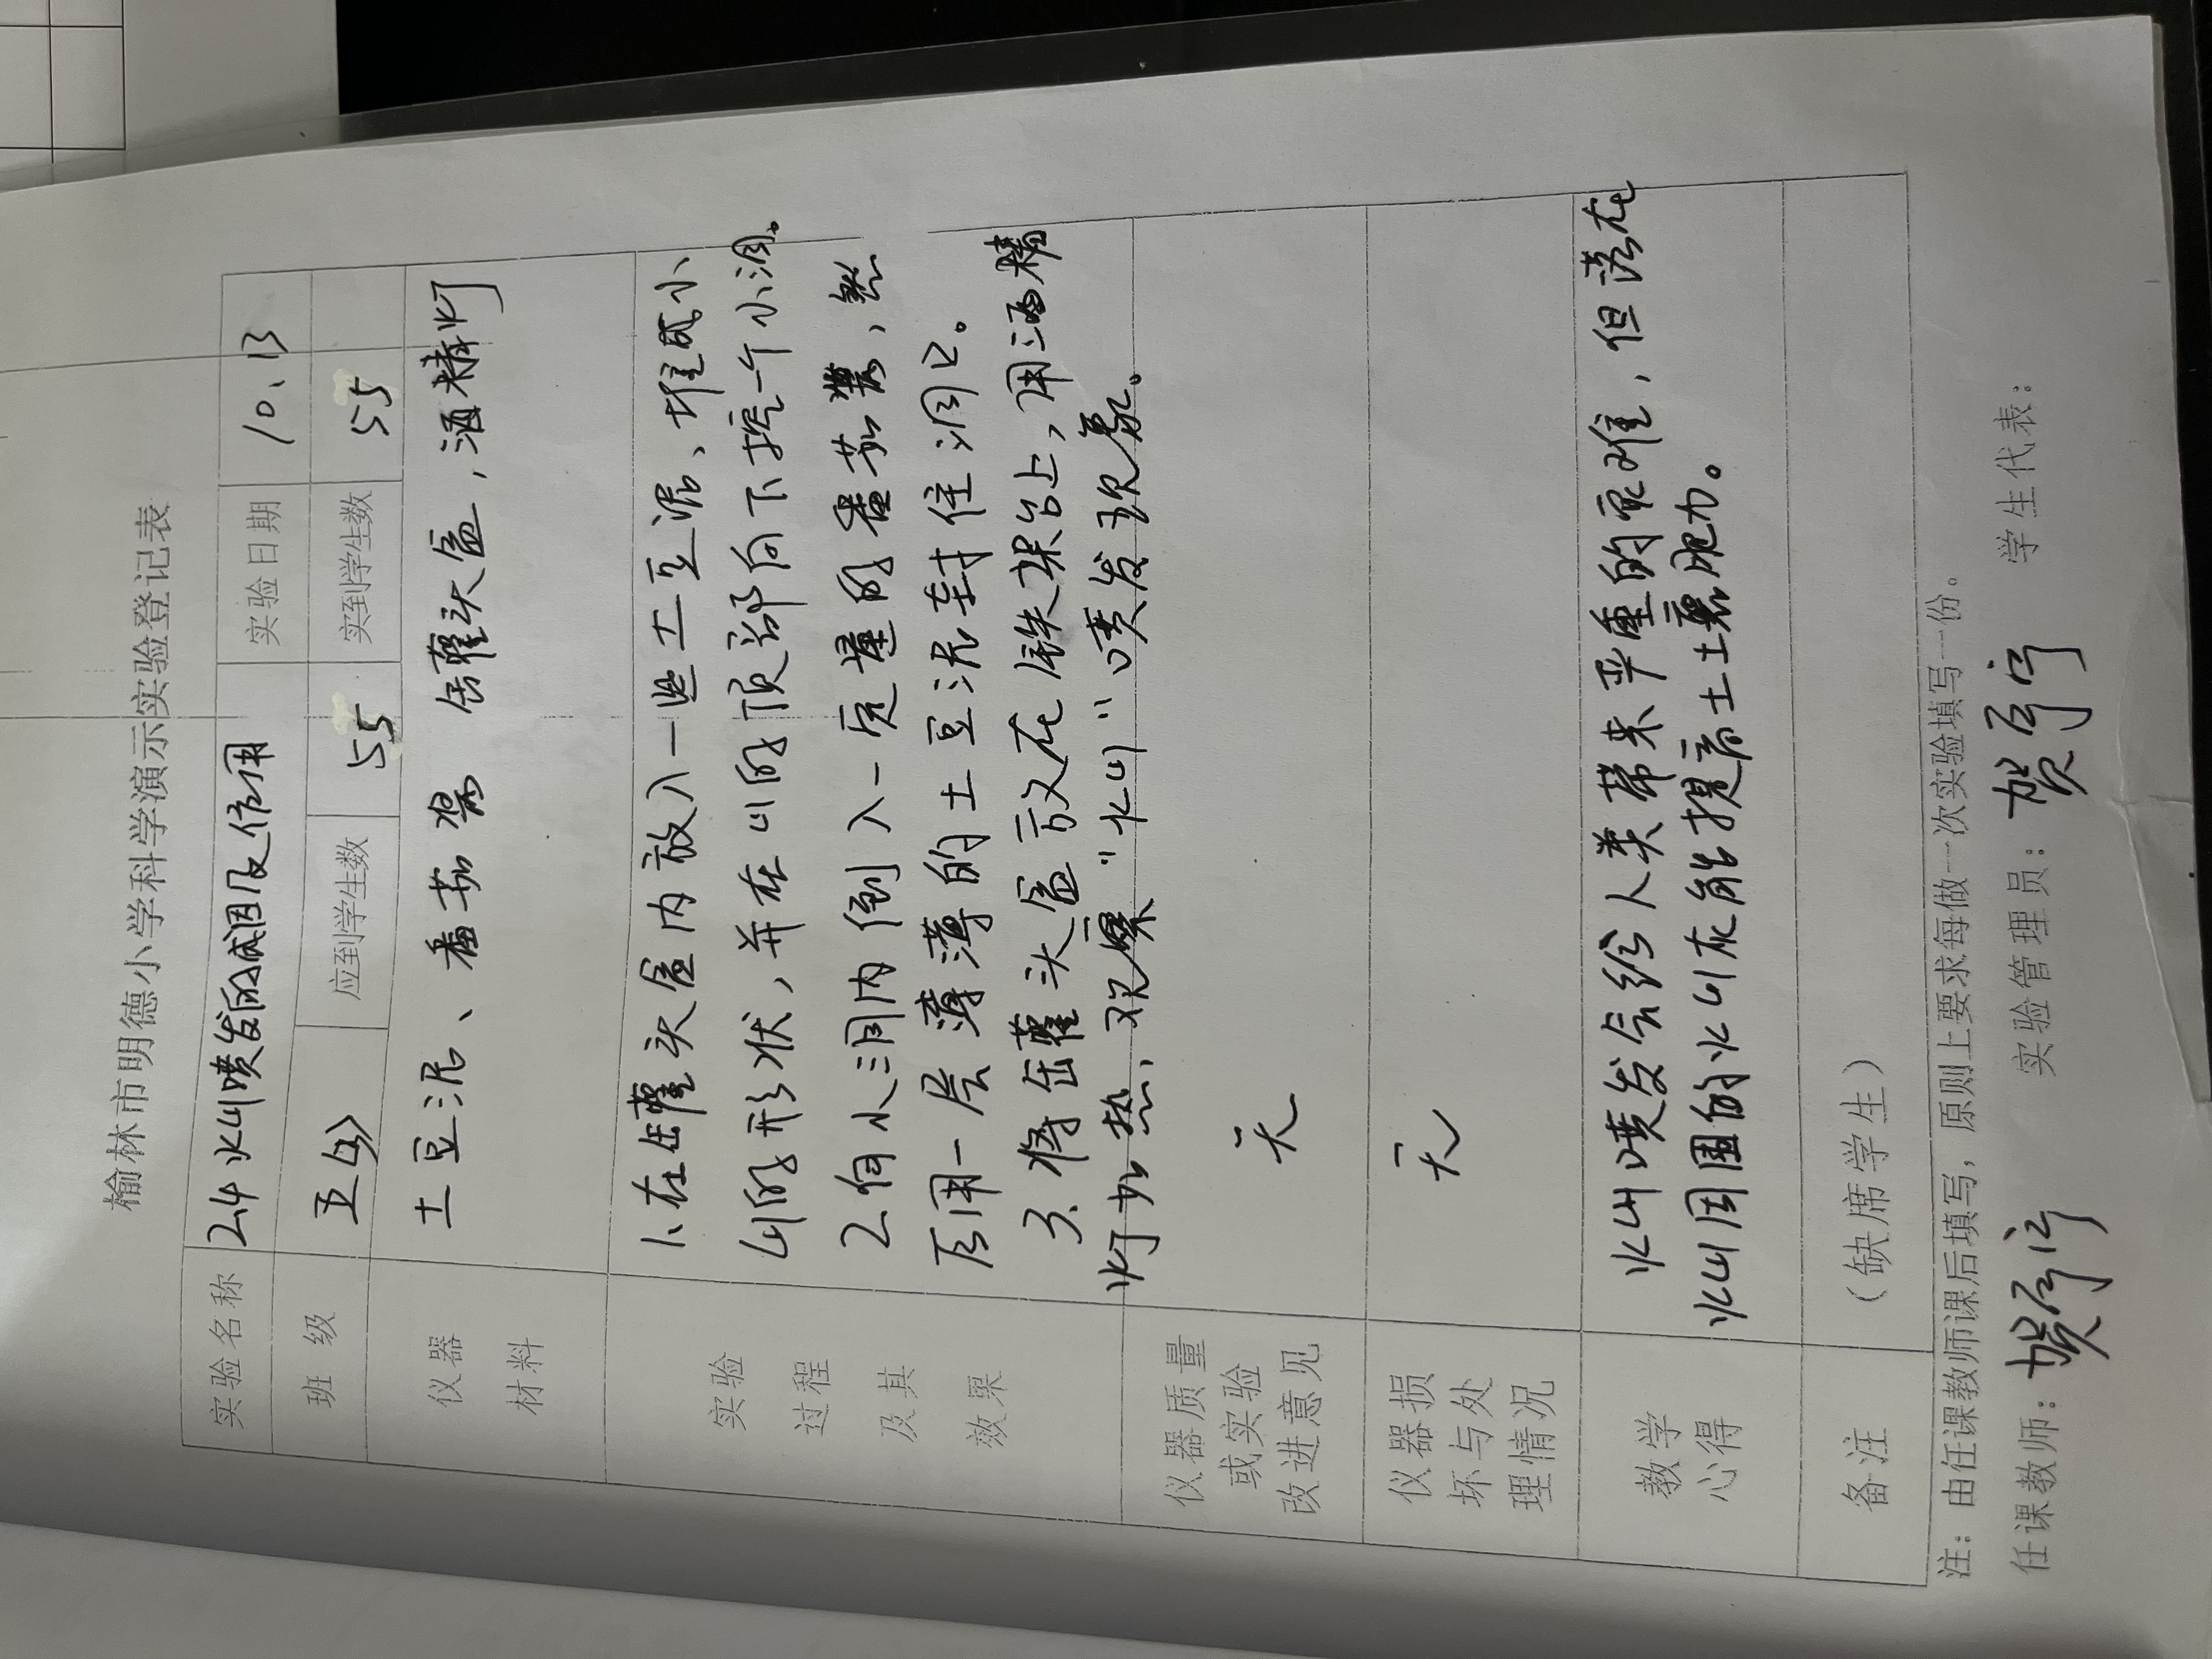 榆林市明德小学科学演示实验登记表
实验名称 2.4 火山喷发的成因及作用 实验日期 10.13
班 级 五(4) 应到学生数 55 实到学生数 55
仪器 土豆泥、番茄酱 罐头盒,酒精灯
材料
实验 1.在罐头盒内放入一些土豆泥、堆成小
过程 山的形状,并在山的顶部向下挖一个小洞。
及其 2.向小洞内倒入一定量的番茄酱,然
效果 后用一层薄薄的土豆泥封住洞口。
3.将罐头盒放在铁架台上,用酒精
灯加热,观察"火山"喷发现象。
仪器质量
或实验 无
改进意见
仪器损
坏与处 无
理情况
教学 火山喷发会给人类带来严重的灾难,但落在
心得 火山周围的火山灰能提高土壤肥力。
备注 (缺席学生)
注:由任课教师课后填写,原则上要求每做一次实验填写一份。
任课教师: 贺 实验管理员: 贺 学生代表: